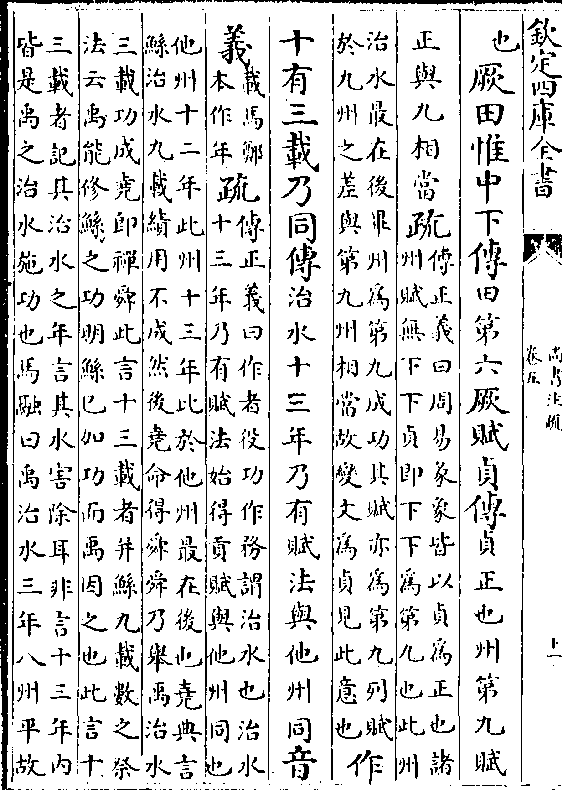 欽定四庫全書
尚書注疏
卷五
也厥田惟中下傳田第六厥賦貞傳貞正也州第九賦
正與九相當疏傳正義曰周易彖象皆以貞爲正也諸
州賦無下下貞即下下爲第九也此州
治水最在後畢州爲第九成功其賦亦爲第九列賦
於九州之差與第九州相當故變文爲貞見此意也作
十有三載乃同傳治水十三年乃有賦法與他州同音
義載馬鄭
本作年疏傳正義曰作者役功作務謂治水也治水
十三年乃有賦法始得貢賦與他州同也
他州十二年此州十三年比於他州最在後也堯典言
鯀治水九載績用不成然後堯命得舜舜乃舉禹治水
三載功成堯即禪舜此言十三載者并鯀九載數之祭
法云禹能修鯀之功明鯀已加功而禹因之也此言十
三載者記其治水之年言其水害除耳非言十三年内
皆是禹之治水施功也馬融曰禹治水三年八州平故